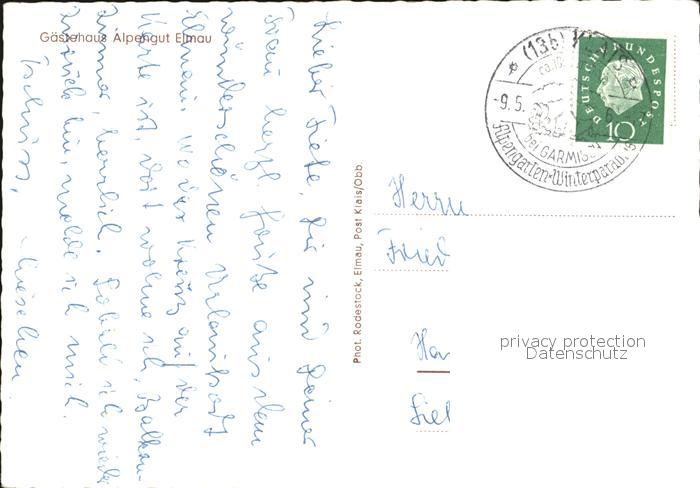 Gästehaus Alpengut Elmau
Lieber Fiete, Dir und Deiner
Frau herzl. Grüße aus dem
wunderschönen Urlaubsort
Elmau. Wo das Kreuz auf der
Karte ist, dort wohne ich, Balkon-
zimmer, herrlich. Sobald ich wieder
zurück bin, melde ich mich.
Tschüss,
Phot. Rodestock, Elmau, Post Klais/Obb.
(13b)
-9.5.
bei GARMISCH
Alpengarten-Winterparadies
DEUTSCHE BUNDESPOST
10
Herrn
Fried
Ha
privacy protection
Datenschutz